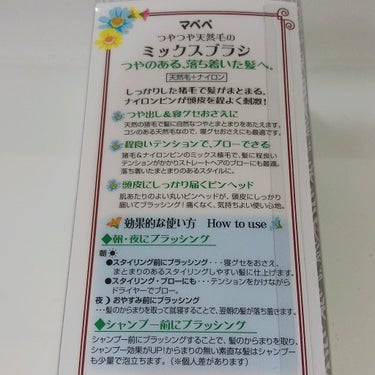 マペペ
つやつや天然毛の
ミックスブラシ
つやのある、落ち着いた髪へ。
天然毛+ナイロン
しっかりした猪毛で髪がまとまる。
ナイロンピンが頭皮を程よく刺激!
つや出し&寝グセおさえに
天然の猪毛で髪に自然なつやとまとまりをあたえます。
コシのある天然毛なので、寝グセおさえにも最適です。
程良いテンションで、ブローできる
猪毛&ナイロンピンのミックス植毛で、髪に程良い
テンションがかかりストレートヘアのブローにも最適。
落ち着いたまとまりのあるスタイルに。
頭皮にしっかり届くピンヘッド
肌あたりのよい丸いピンヘッドが、頭皮にしっかり
届いてブラッシング!痛くなく、気持ちよい使い心地。
効果的な使い方 How to use
◆朝・夜にブラッシング
朝
●スタイリング前にブラッシング・・・寝グセをおさえ、
まとまりのあるスタイリングしやすい髪に仕上げます。
●スタイリング・ブローにも・・・テンションをかけながら
ドライヤーでブロー。
夜 おやすみ前にブラッシング
髪のからまりを取って就寝することで、翌朝の髪が落ち着きます。
◆シャンプー前にブラッシング
シャンプー前にブラッシングすることで、髪のからまりを取り、
シャンプー効果がUP!からまりの無い素直な髪はシャンプー
も少量で泡立ちます。(※個人差があります)